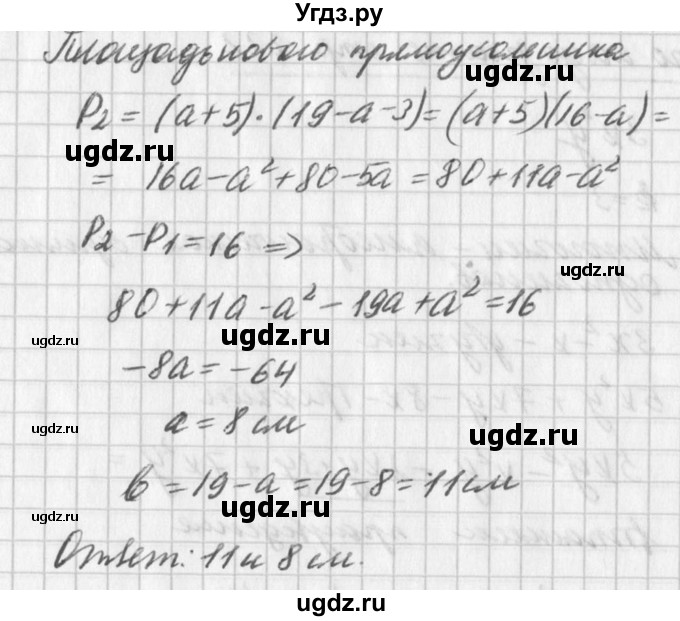 Угдз.ру
Площадь нового прямоугольника
ugdz.ru
P₂ = (a+5)·(19-a-3) = (a+5)(16-a) =
ugdz.ru
ugdz.ru
= 16a-a²+80-5a = 80+11a-a²
P₂ - P₁ = 16 =>
ugdz.ru
80+11a-a²-19a+a² = 16
ugdz.ru
ugdz.ru
-8a = -64
a = 8 см
ugdz.ru
ugdz.ru
b = 19-a = 19-8 = 11 см
ugdz.ru
ugdz.ru
Ответ: 11 и 8 см.
ugdz.ru